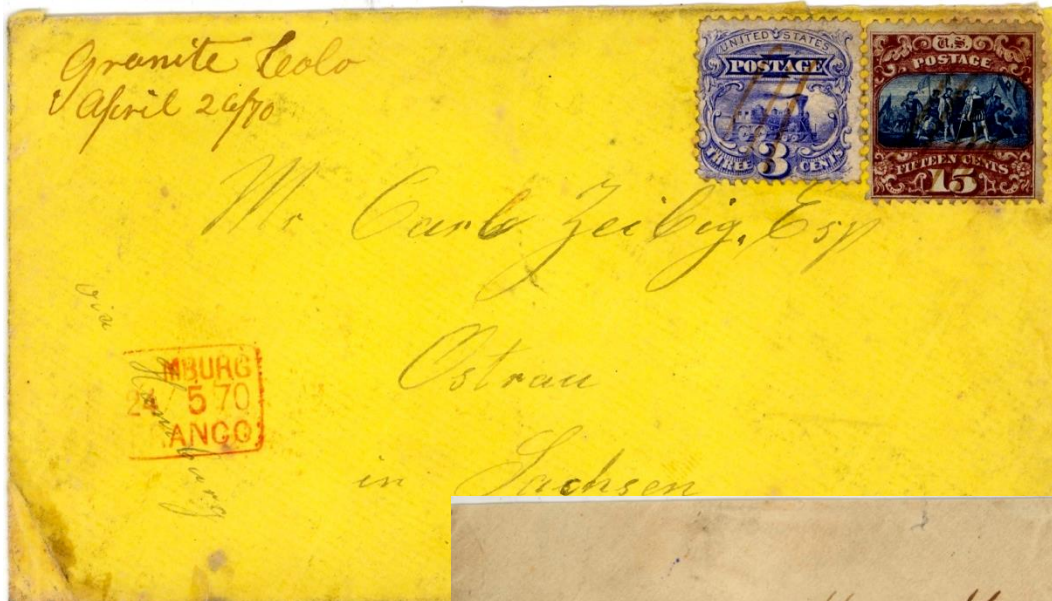 Granite Colo
April 26/70
UNITED STATES
POSTAGE
THREE 3 CENTS
U.S.
POSTAGE
FIFTEEN CENTS
15
Mr Carl Zeibig, Esq
Ostrau
in Sachsen
via Hamburg
MBURG
24 5 70
ANCO